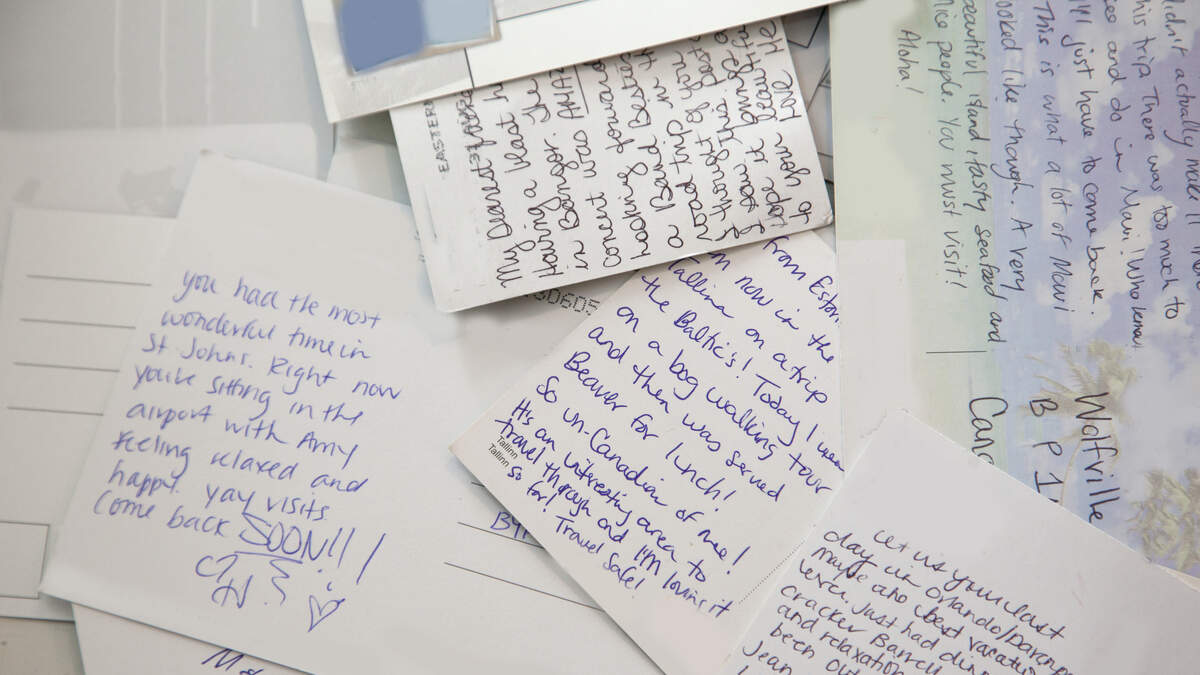 you had the most
wonderful time in
St Johns. Right now
you're sitting in the
airport with Amy
feeling relaxed and
happy. yay visits
Come back SOON!!!
EASTERN
My Dearest
Having a blast
in Bangor. The
concert was AMA
heading towards
a Band Bestie
road trip in th
I thought of you
I saw this post
hope it brings
to your
Love
from Eston
I'm now in the
Tallinn on a trip
the Baltic's! Today I
on a bog walking tour
and then was served
Beaver for lunch!
So un-Canadian of me!
It's an interesting area to
travel through and I'm loving it
so far! Travel Safe!
Tallinn
Tallinn
30605
didn't actually make it
this trip There was too much to
see and do in Maui!
I'll just have to come back.
This is what a lot of Maui
looked like though. A very
beautiful island, tasty seafood and
nice people. You must visit!
Aloha!
Wolfville
B P 1
Cana
Let us your last
day in Orlando/Davenp
maybe the best vacati
ever. Just had dinn
Cracker Barrell
and relaxation
been out
Jean